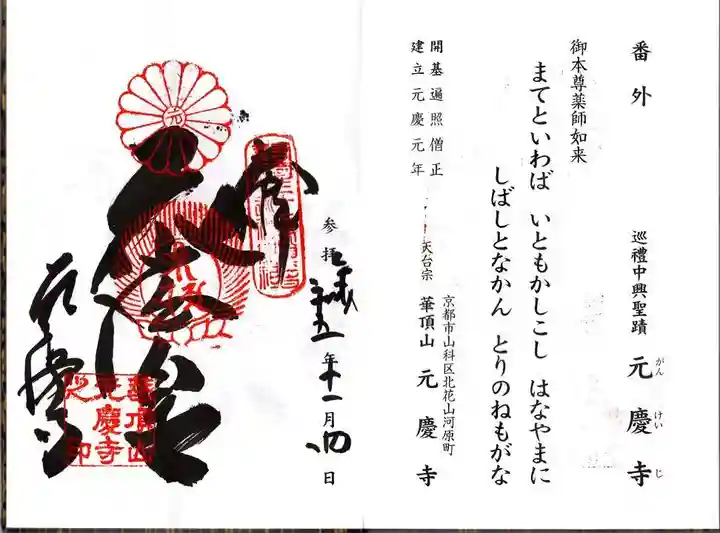 番外
巡禮中興聖蹟 元慶寺
がんけいじ
御本尊薬師如来
まてといわば いともかしこし はなやまに
しばしとなかん とりのねもがな
開基遍照僧正
建立元慶元年
京都市山科区北花山河原町
天台宗 華頂山 元慶寺
参拝 年十一月四日
元
華頂山
元慶寺
之印
元慶寺